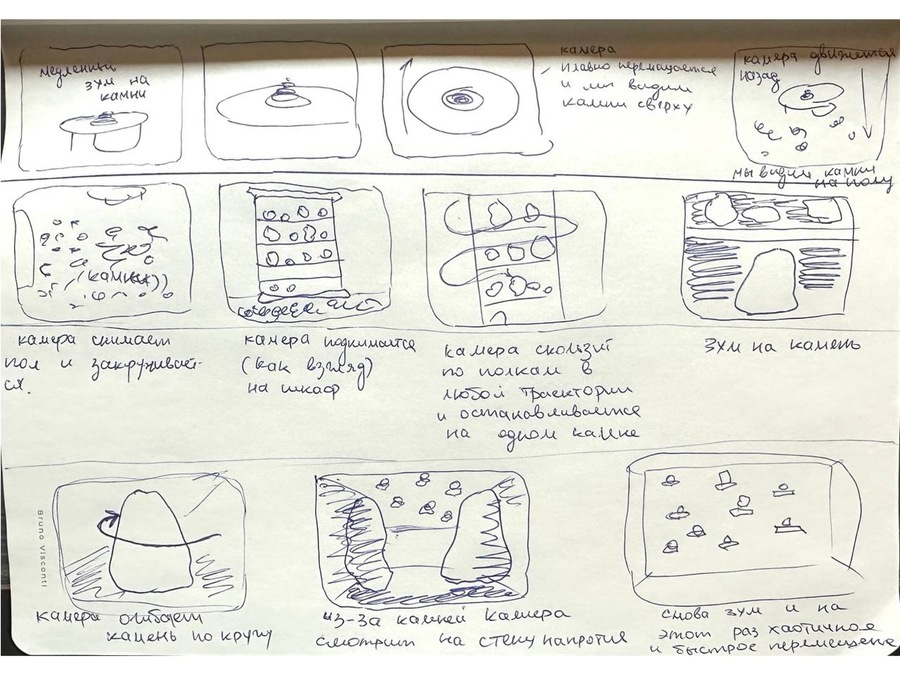 медленный
зум на
камни
камера
плавно перемещается
и мы видим
камни сверху
камера движется
назад
мы видим камни
на полу
(камни)
камера снимает
пол и закруживает-
ся.
камера поднимается
(как взгляд)
на шкаф
камера скользит
по полкам в
любой траектории
и останавливается
на одном камне
зум на камень
Bruno Visconti
камера огибает
камень по кругу
из-за камней камера
смотрит на стену напротив
снова зум и на
этот раз хаотичное
и быстрое перемещение